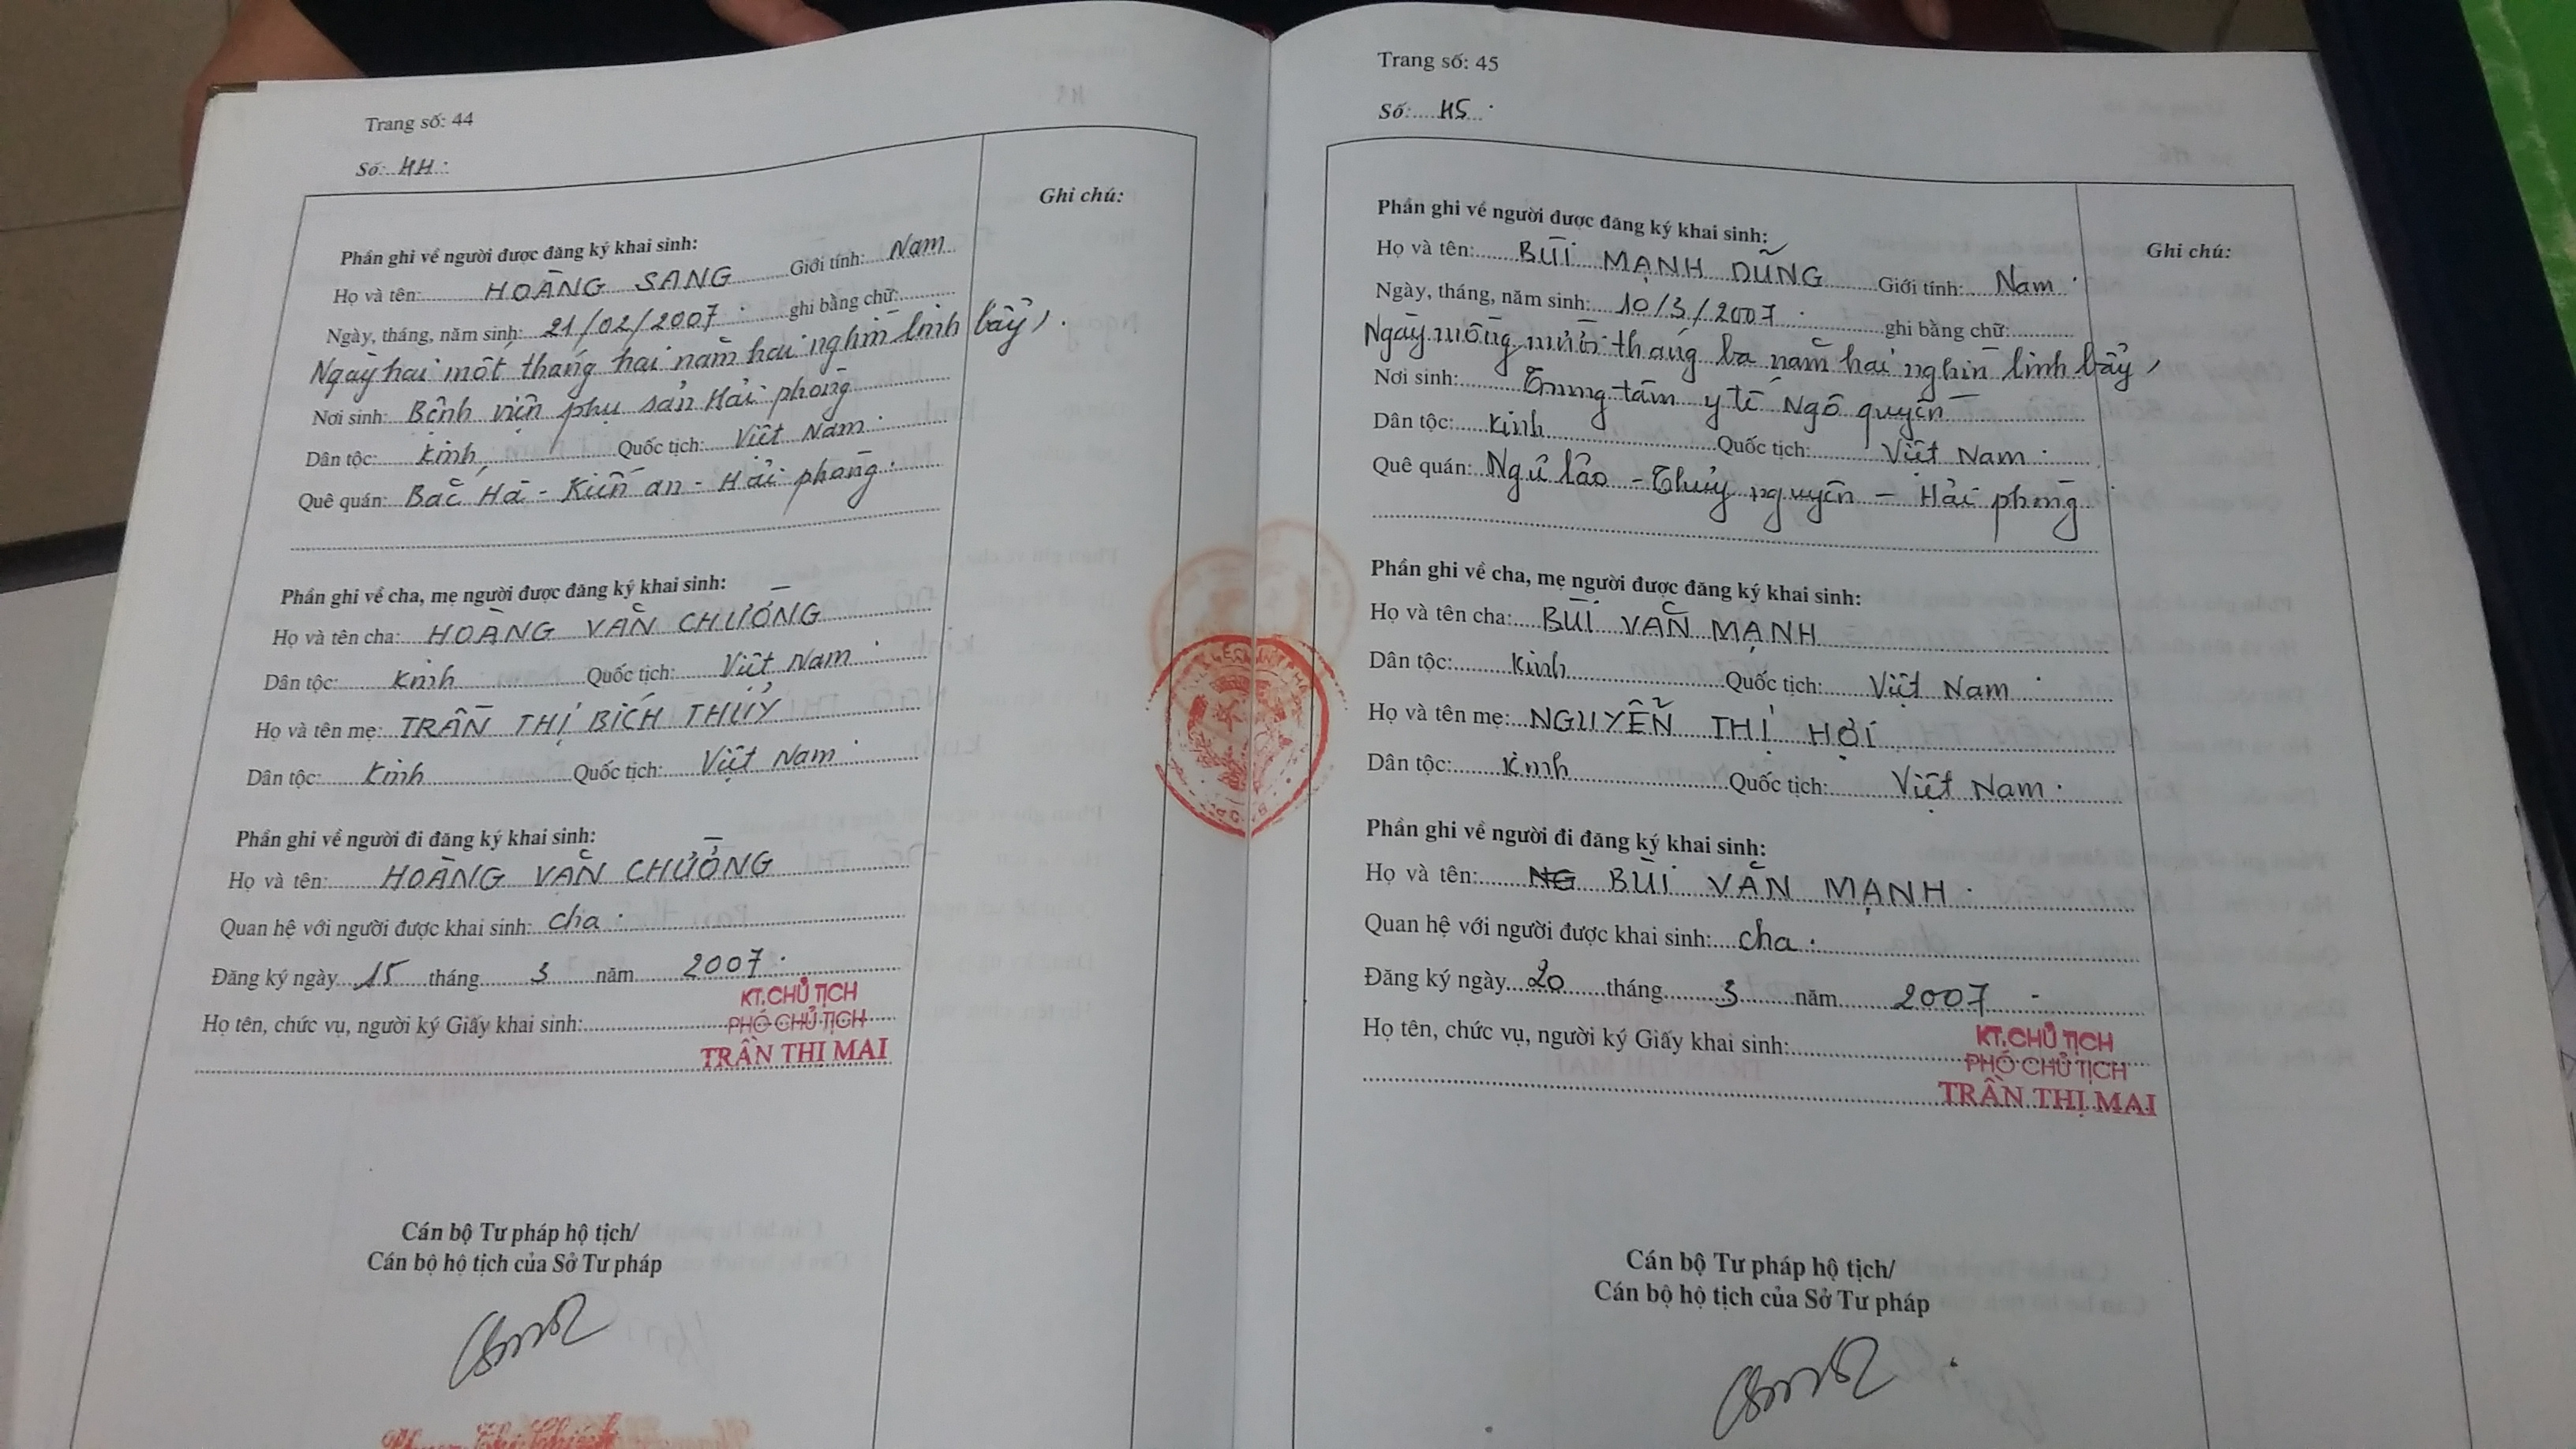 Trang số: 44
Số: 44.
Ghi chú:
Phần ghi về người được đăng ký khai sinh:
Họ và tên: HOÀNG SANG Giới tính: Nam
Ngày, tháng, năm sinh: 21/02/2007. ghi bằng chữ:
Ngày hai mốt tháng hai năm hai nghìn linh bảy,.
Nơi sinh: Bệnh viện phụ sản Hải phòng
Dân tộc: Kinh Quốc tịch: Việt Nam.
Quê quán: Bắc Hà - Kiến an - Hải phòng.
Phần ghi về cha, mẹ người được đăng ký khai sinh:
Họ và tên cha: HOÀNG VĂN CHƯỞNG
Dân tộc: Kinh Quốc tịch: Việt Nam.
Họ và tên mẹ: TRẦN THỊ BÍCH THỦY
Dân tộc: Kinh Quốc tịch: Việt Nam.
Phần ghi về người đi đăng ký khai sinh:
Họ và tên: HOÀNG VĂN CHƯỞNG
Quan hệ với người được khai sinh: cha.
Đăng ký ngày 15 tháng 3 năm 2007.
KT.CHỦ TỊCH
Họ tên, chức vụ, người ký Giấy khai sinh: PHÓ CHỦ TỊCH
TRẦN THỊ MAI
Cán bộ Tư pháp hộ tịch/
Cán bộ hộ tịch của Sở Tư pháp
Trang số: 45
Số: 45.
Ghi chú:
Phần ghi về người được đăng ký khai sinh:
Họ và tên: BÙI MẠNH DŨNG Giới tính: Nam.
Ngày, tháng, năm sinh: 10/3/2007. ghi bằng chữ:
Ngày mồng mười tháng ba năm hai nghìn linh bảy,
Nơi sinh: Trung tâm y tế Ngô quyền
Dân tộc: Kinh Quốc tịch: Việt Nam.
Quê quán: Ngũ lão - Thủy nguyên - Hải phòng
Phần ghi về cha, mẹ người được đăng ký khai sinh:
Họ và tên cha: BÙI VĂN MẠNH
Dân tộc: Kinh Quốc tịch: Việt Nam.
Họ và tên mẹ: NGUYỄN THỊ HỢI
Dân tộc: Kinh Quốc tịch: Việt Nam.
Phần ghi về người đi đăng ký khai sinh:
Họ và tên: NG BÙI VĂN MẠNH.
Quan hệ với người được khai sinh: cha.
Đăng ký ngày 20 tháng 3 năm 2007
KT.CHỦ TỊCH
Họ tên, chức vụ, người ký Giấy khai sinh: PHÓ CHỦ TỊCH
TRẦN THỊ MAI
Cán bộ Tư pháp hộ tịch/
Cán bộ hộ tịch của Sở Tư pháp